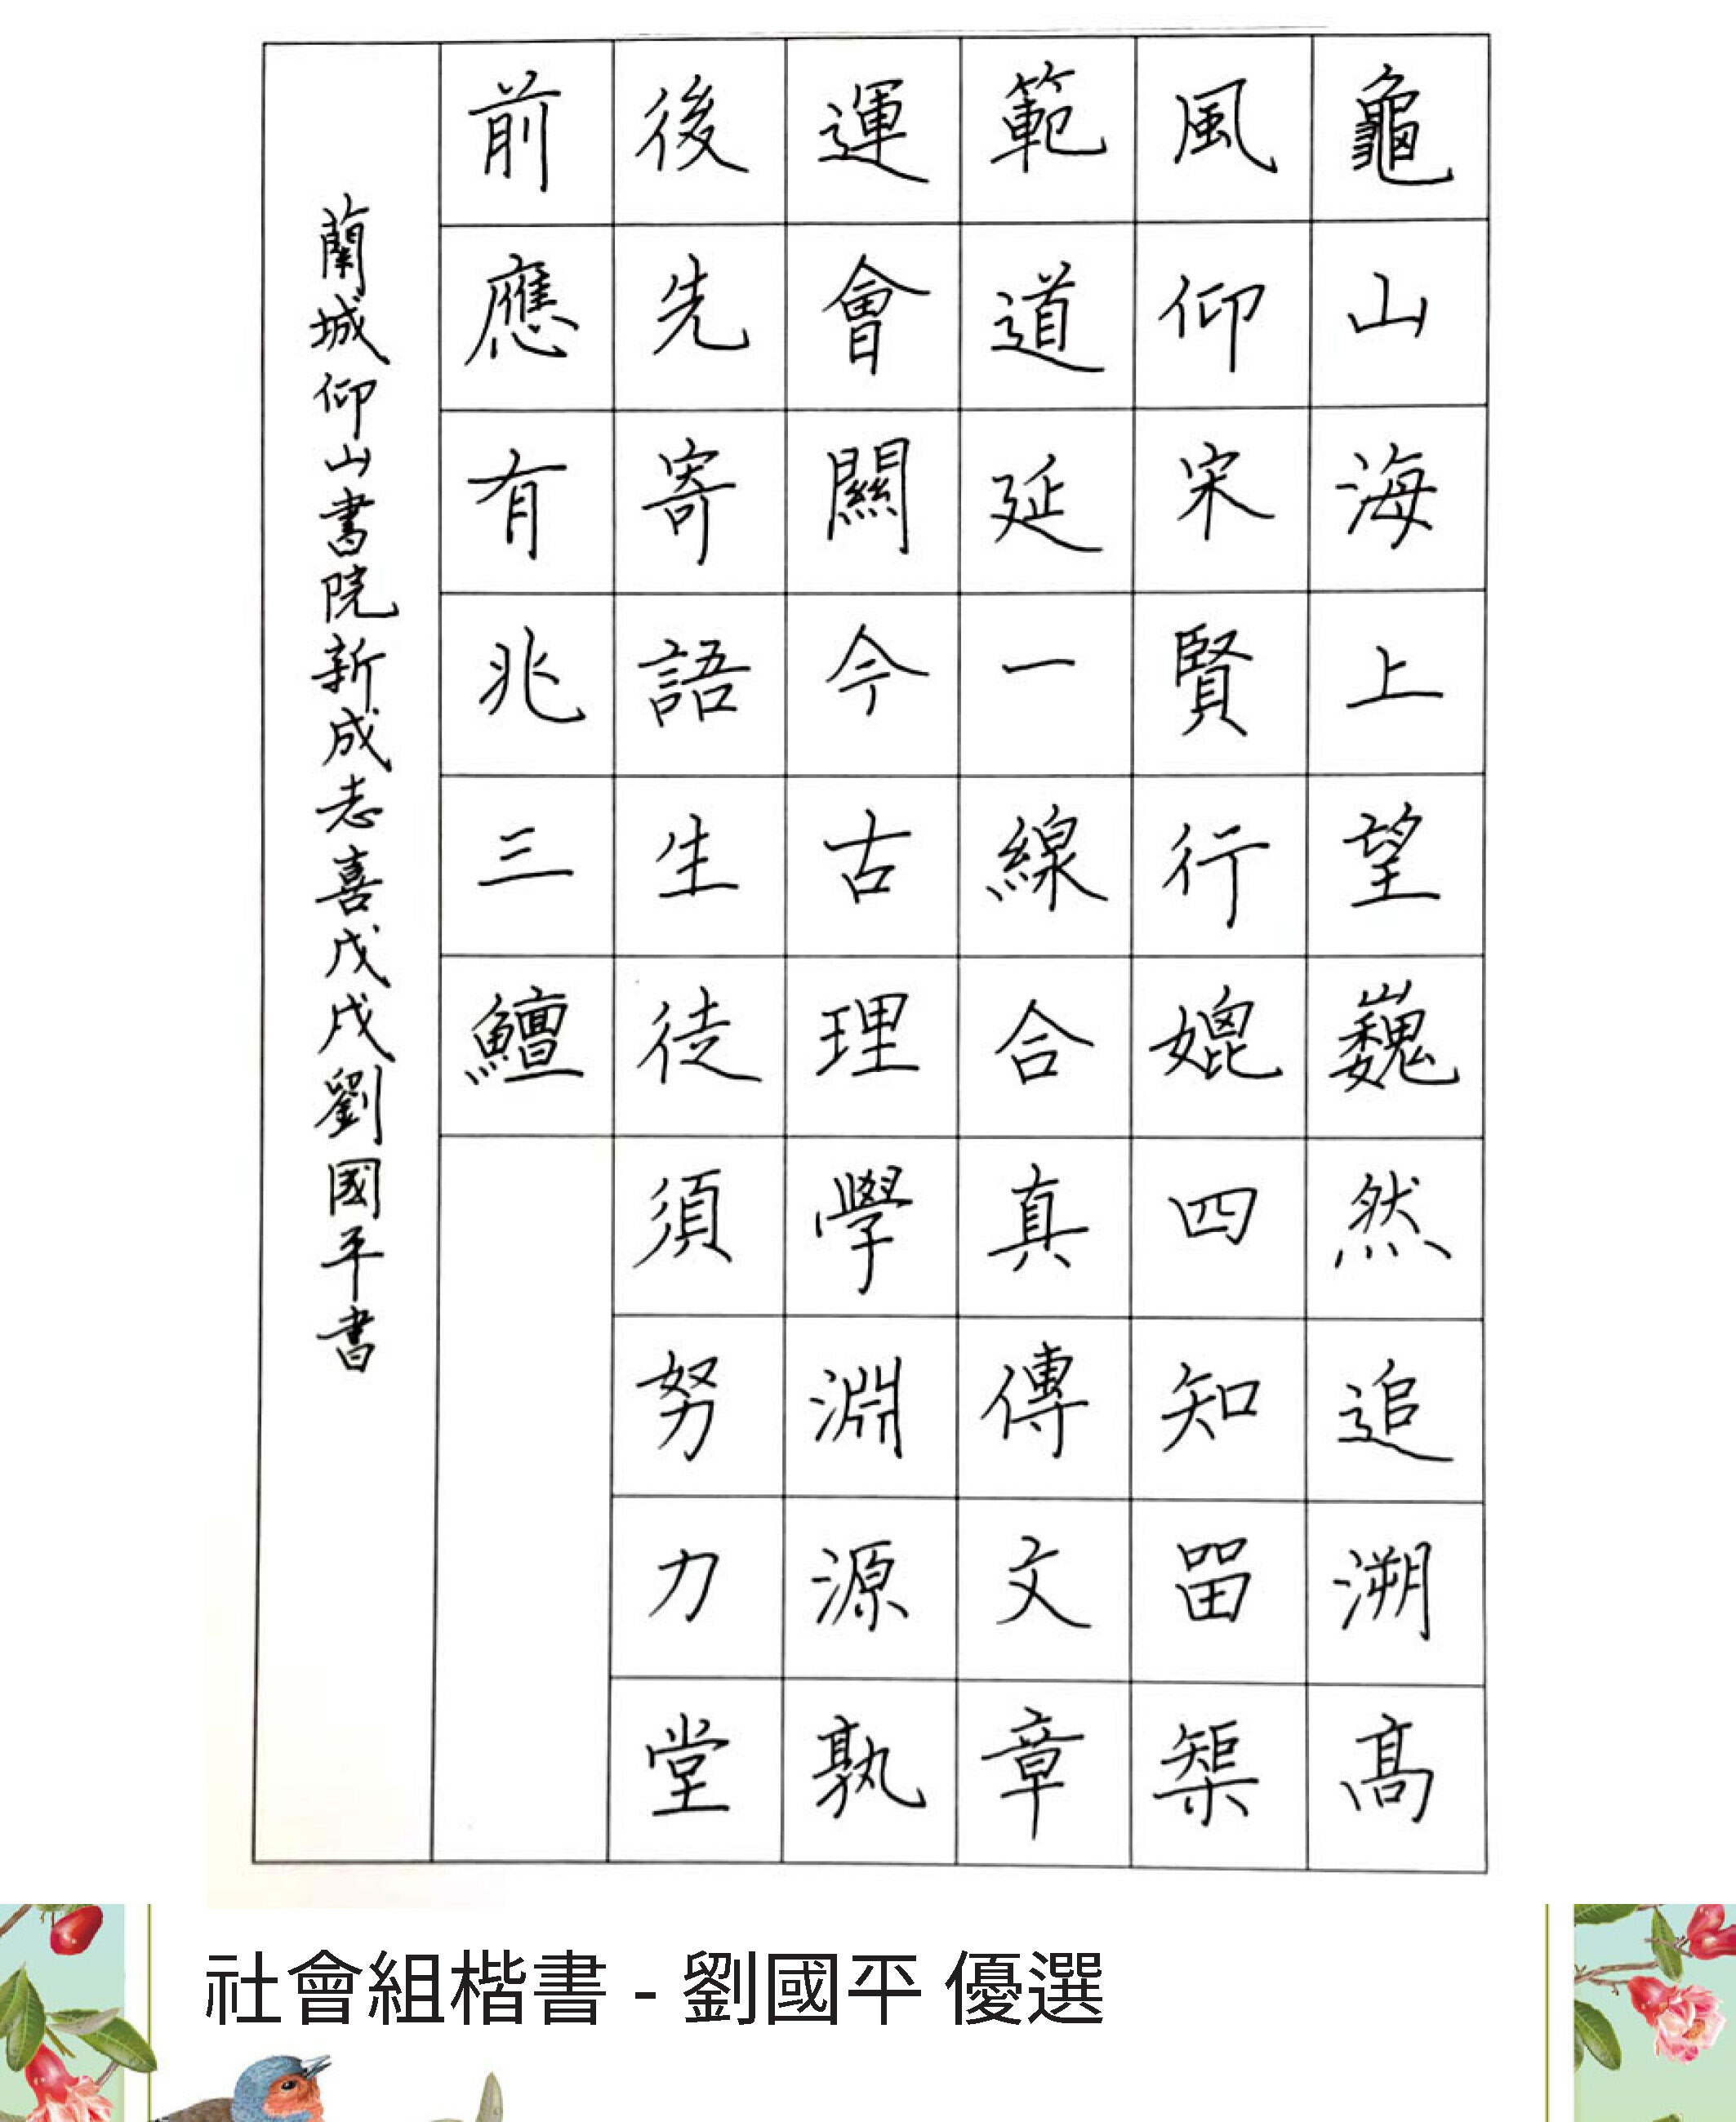 龜山海上望巍然追溯高
風仰宋賢行媲四知留榘
範道延一線合真傳文章
運會關今古理學淵源孰
後先寄語生徒須努力堂
前應有兆三鱣
蘭城仰山書院新成志喜戊戌劉國平書
社會組楷書 - 劉國平 優選